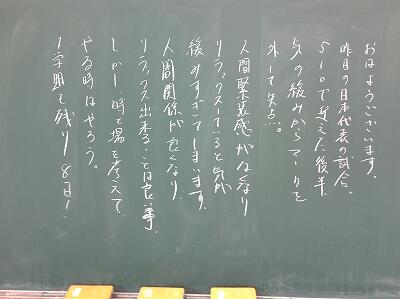 おはようございます。
昨日の日本代表の試合。
5-0で迎えた後半
気の緩みからマークを
外して失点…。
人間緊張感がなくなり
リラックスしていると気が
緩みすぎてしまいます。
人間関係が良くなり
リラックス出来ることは良い事。
しかし、時と場を考えて、
やる時はやろう。
1学期も残り8日!